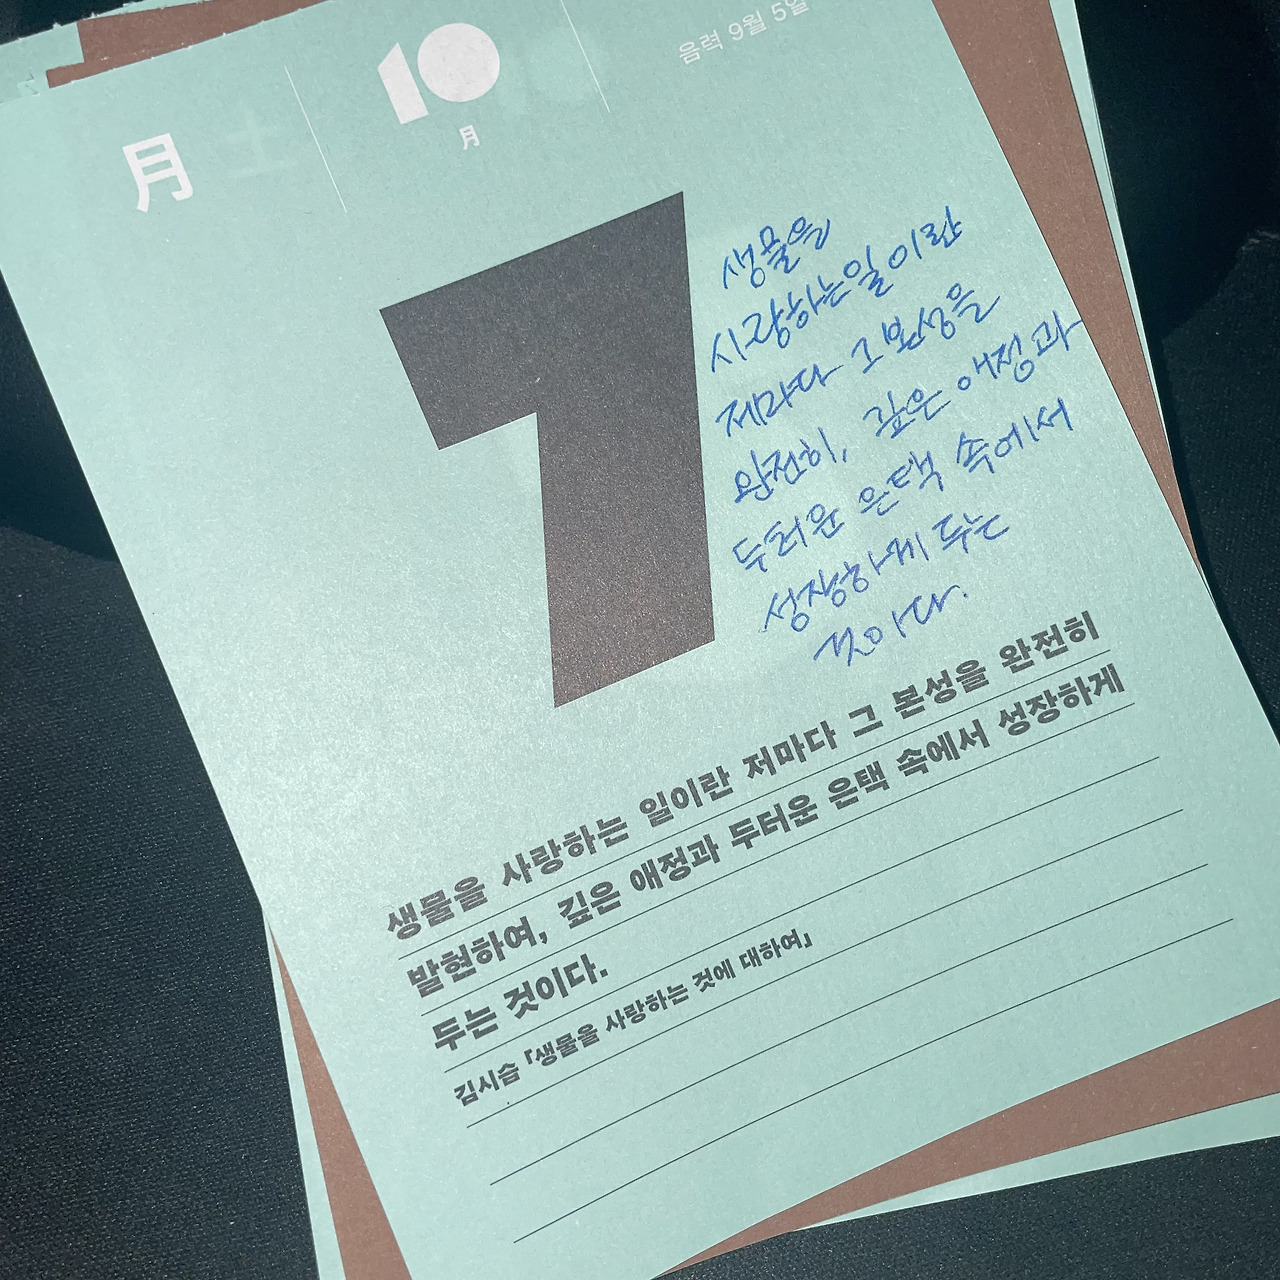 月
10
月
음력 9월 5일
7
생물을
사랑하는일이란
제마다 그 본성을
완전히, 깊은 애정과
두터운 은택 속에서
성장하게 두는
것이다.
생물을 사랑하는 일이란 저마다 그 본성을 완전히
발현하여, 깊은 애정과 두터운 은택 속에서 성장하게
두는 것이다.
김시습 「생물을 사랑하는 것에 대하여」